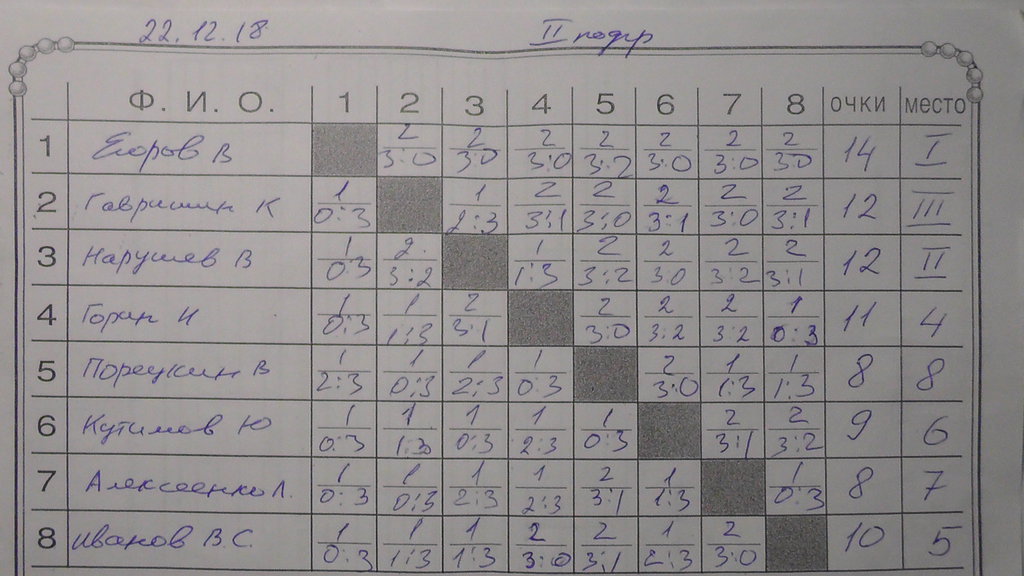 22.12.18 II подгр
Ф. И. О. 1 2 3 4 5 6 7 8 очки место
1 Егоров В 2 3:0 2 3:0 2 3:0 2 3:2 2 3:0 2 3:0 2 3:0 14 I
2 Гавришин К 1 0:3 1 2:3 2 3:1 2 3:0 2 3:1 2 3:0 2 3:1 12 III
3 Нарушев В 1 0:3 2 3:2 1 1:3 2 3:2 2 3:0 2 3:2 2 3:1 12 II
4 Горин И 1 0:3 1 1:3 2 3:1 2 3:0 2 3:2 2 3:2 1 0:3 11 4
5 Порецкин В 1 2:3 1 0:3 1 2:3 1 0:3 2 3:0 1 1:3 1 1:3 8 8
6 Кутимов Ю 1 0:3 1 1:3 1 0:3 1 2:3 1 0:3 2 3:1 2 3:2 9 6
7 Алексеенко Л. 1 0:3 1 0:3 1 2:3 1 2:3 2 3:1 1 1:3 1 0:3 8 7
8 Иванов В.С. 1 0:3 1 1:3 1 1:3 2 3:0 2 3:1 1 2:3 2 3:0 10 5